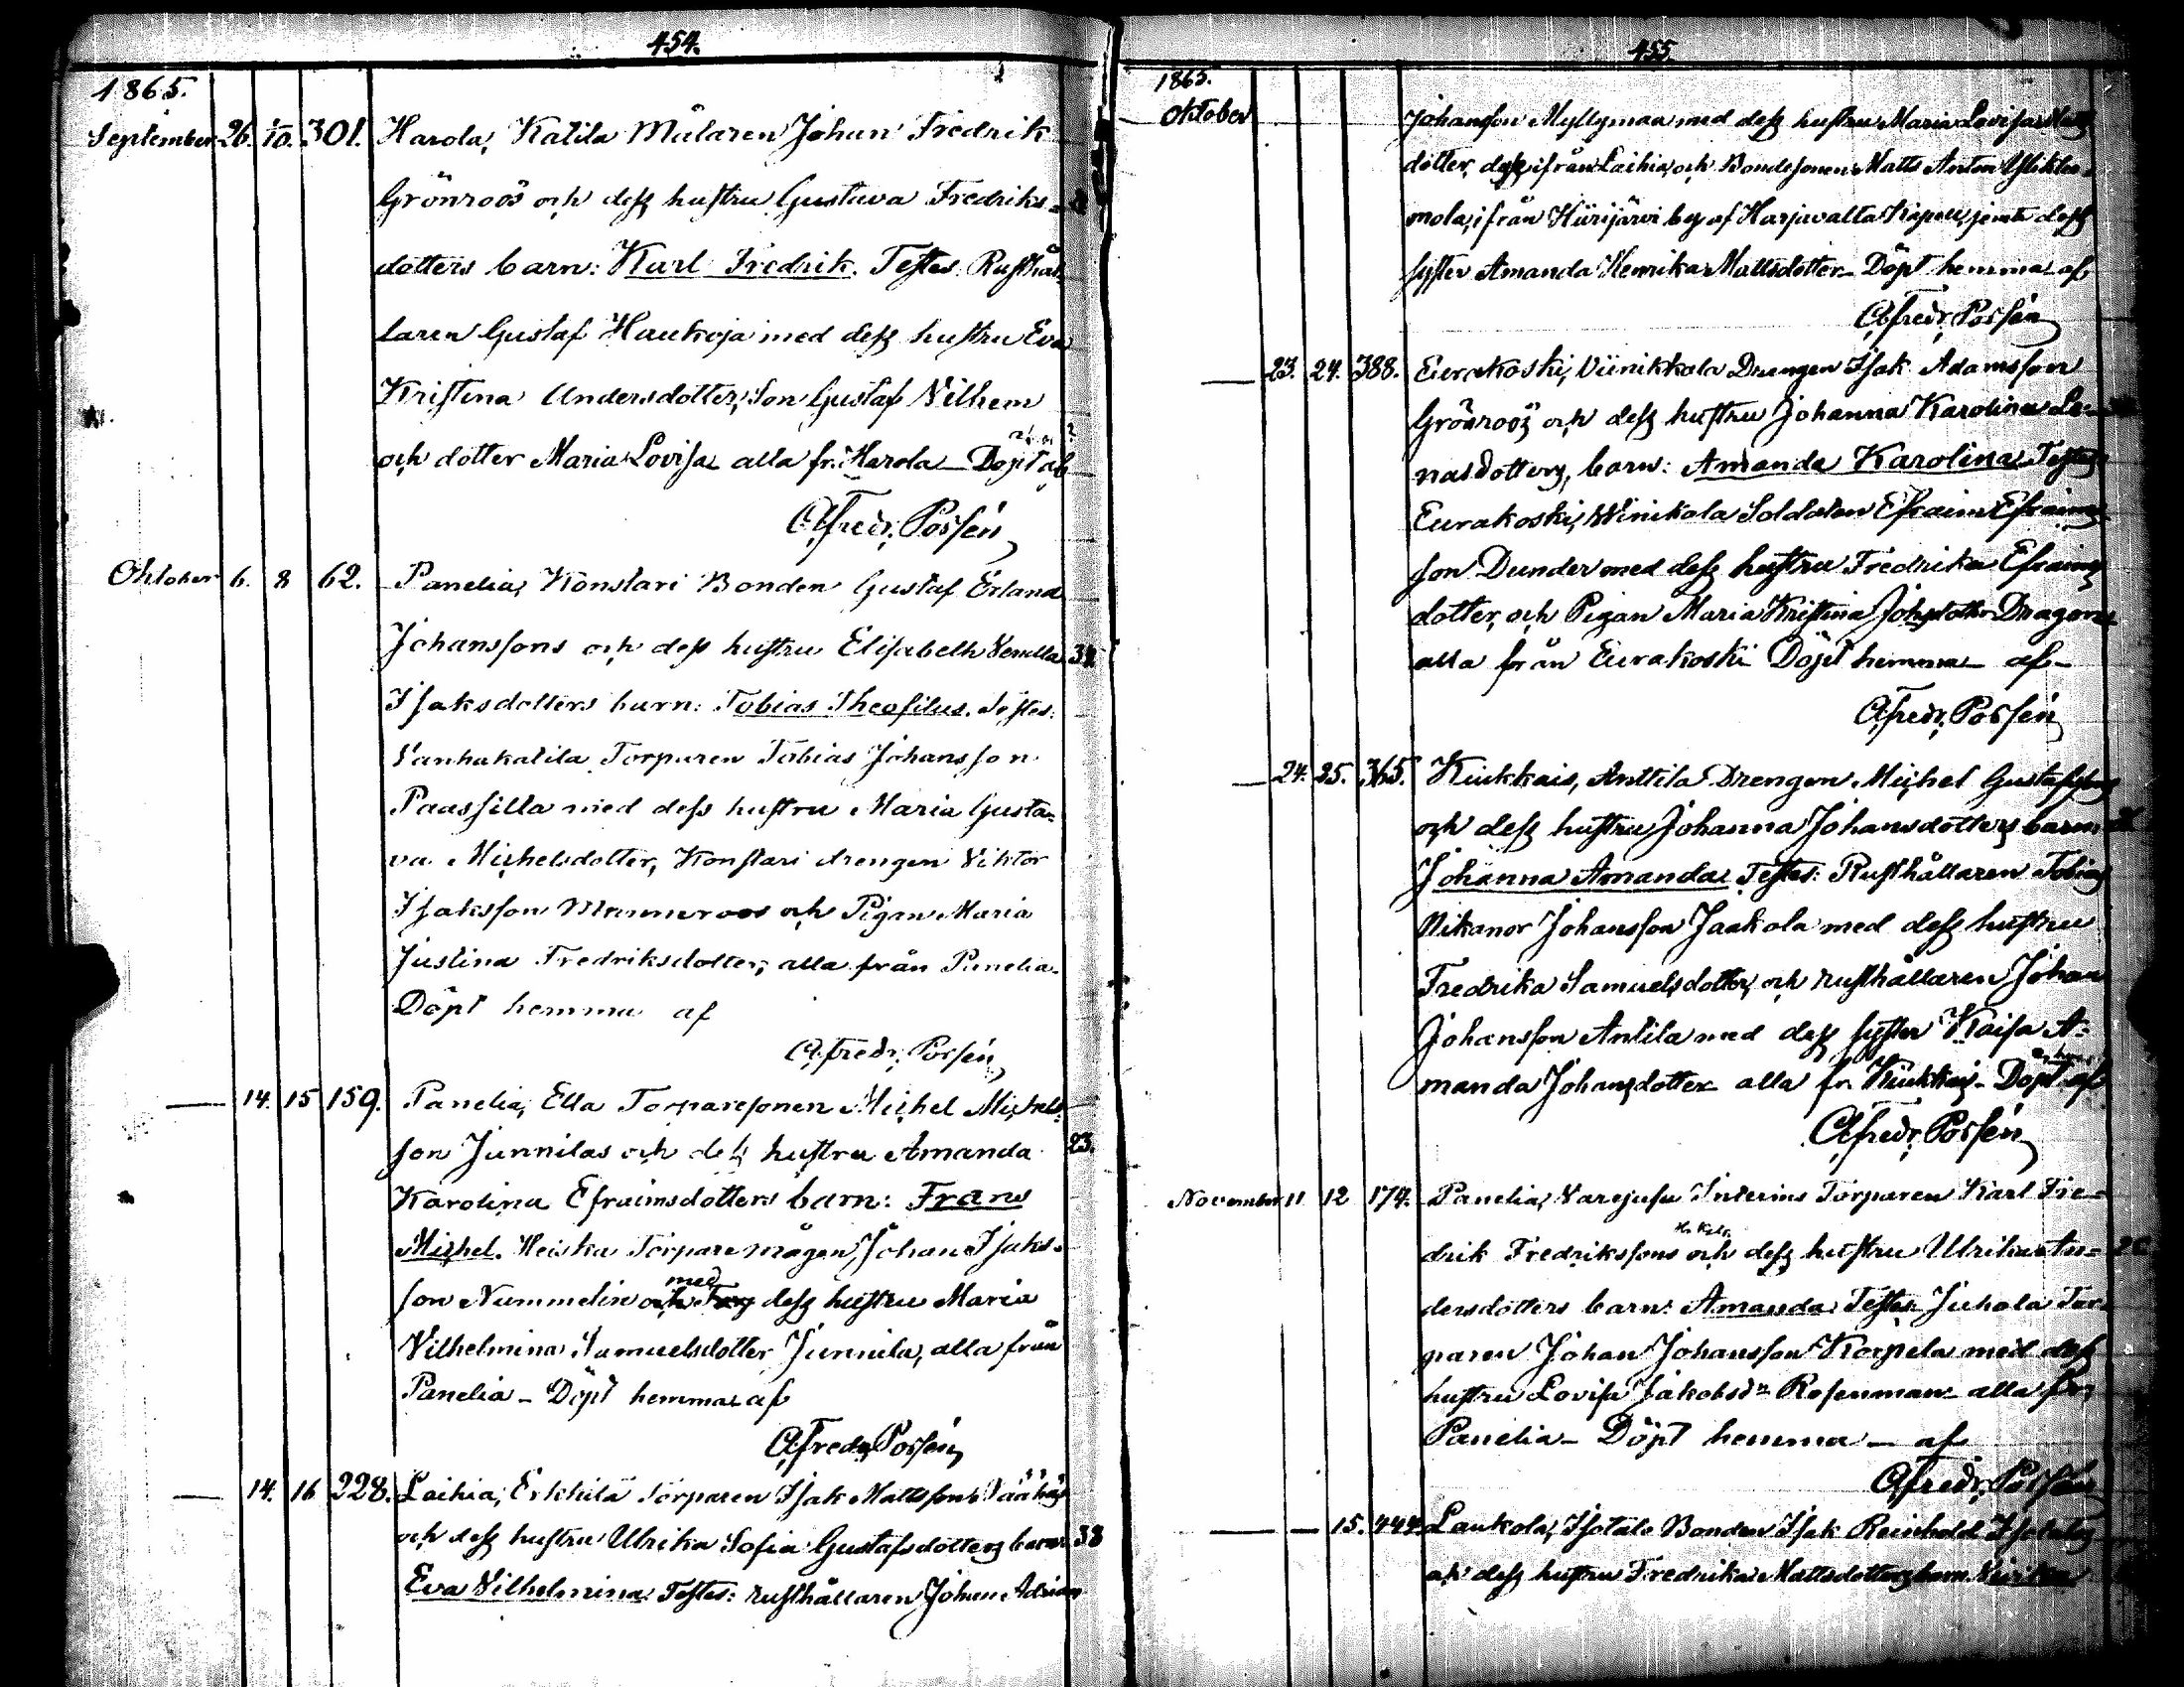 454.
1865.
September 26. 10. 301. Harola, Katila Målaren Johan Fredrik
Grönroos och dess hustru Gustava Fredriks=
dotters barn: Karl Fredrik. Testes: Rusthål=
laren Gustaf Haukoja med dess hustru Eva
Kristina Andersdotter, Son Gustaf Vilhem
och dotter Maria Lovisa alla fr. Harola Döpt af
A. Fredr. Possén
Oktober 6. 8 62. Panelia, Konstari Bonden Gustaf Erland
Johanssons och dess hustru Elisabeth Vendla 34
Isaksdotters barn: Tobias Theofilus. Testes:
Vanhakatila Torparen Tobias Johansson
Paassilla med dess hustru Maria Gusta=
va Michelsdotter, Konstari drengen Viktor
Isaksson Manneroos och Pigan Maria
Justina Fredriksdotter, alla från Panelia.
Döpt hemma af
A. Fredr. Possén
14. 15 159. Panelia, Ella Torparesonen Michel Michels=
son Junnilas och dess hustru Amanda 23.
Karolina Efraimsdotters barn: Frans
Michel. Heiska Torpare mågen, Johan Isaks=
son Nummelin och med dess hustru Maria
Vilhelmina Samuelsdotter Junnila, alla från
Panelia - Döpt hemma af
A. Fredr. Possén
14. 16 228. Laihia, Erkkilä Torparen Isak Mattssons
och dess hustru Ulrika Sofia Gustafsdotters barn: 38
Eva Vilhelmina. Testes: rusthållaren Johan Adrian
455.
1865.
Oktober Johansson Myllymaa med dess hustru Maria Lovisa Matts
dotter, ifrån Laihia, och Bondesonen Matts Anton
mola, ifrån Hiirijärvi by af Harjavalta Kapell, jemte dess
syster Amanda Henrika Mattsdotter - Döpt hemma af
A. Fredr. Possén
23. 24. 388. Eurakoski, Viinikkala Drengen Isak Adamsson
Grönroos och dess hustru Johanna Karolina Le=
nasdotters, barn: Amanda Karolina Testes
Eurakoski, Winikala Soldaten Efraim Efraims
son Dunder med dess hustru Fredrika Efraims
dotter, och Pigan Maria Kristina Johsdotter Dragon
alla från Eurakoski Döpt hemma af
A. Fredr. Possén
24. 25. 365. Kiukkais, Anttila Drengen Michel Gustafssons
och dess hustru Johanna Johansdotters barn:
Johanna Amanda Testes: Rusthållaren Tobias
Nikanor Johansson Jaakola med dess hustru
Fredrika Samuelsdotter, och rusthållaren Johan
Johansson Antila med dess syster Kaisa A=
manda Johansdotter alla fr. Kiukkais - Döpt af
A. Fredr. Possén
November 11 12 174. Panelia, Varejusu Interims Torparen Karl Fre=
drik Fredrikssons och dess hustru Ulrika An=
dersdotters barn: Amanda Testes Juhola Tor
paren Johan Johansson Korpela med dess
hustru Lovisa Jakobsdr Rosenman alla fr.
Panelia - Döpt hemma - af
A. Fredr. Possén
15. 444. Laukola, Isotalo Bonden Isak Reinhold Isotalos
och dess hustru Fredrika Mattsdotters barn